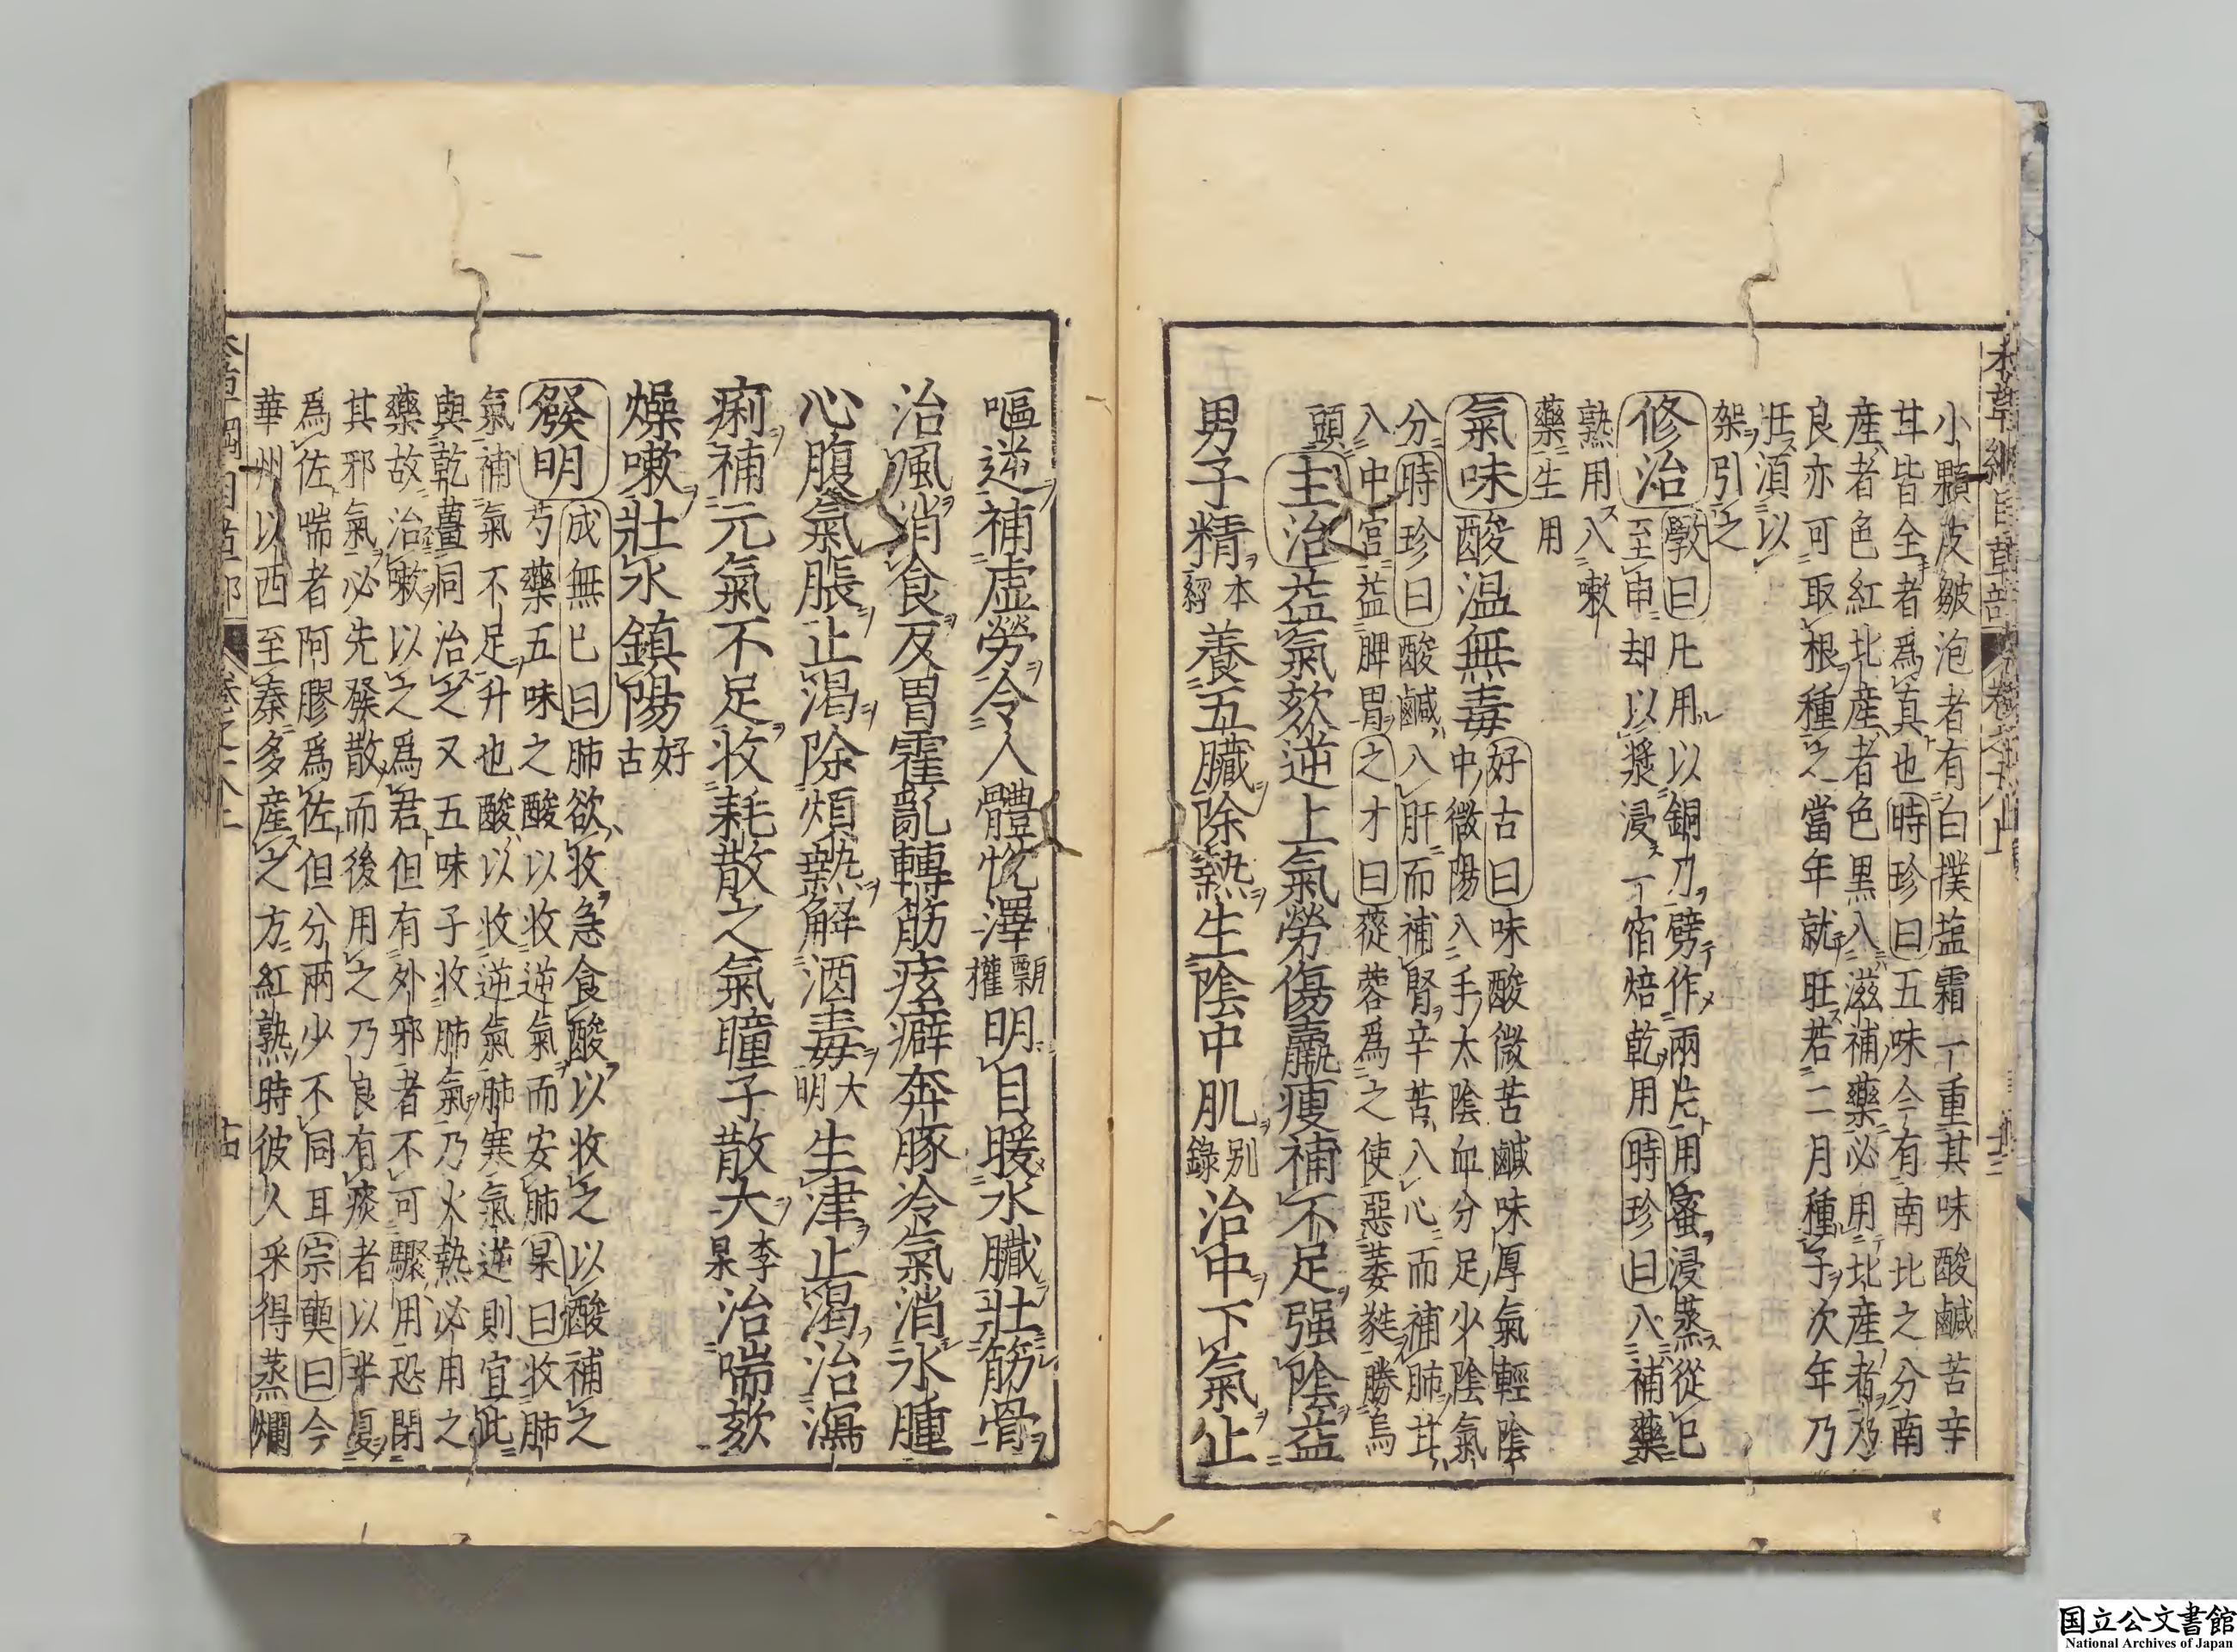 本草綱目草部 卷之十八上 十三
小顆皮皺泡者有白撲塩霜一重其味酸鹹苦辛
甘皆全者爲真也時珍曰五味今有南北之分南
産者色紅北産者色黒入滋補藥必用北産者乃
良亦可取根種之當年就旺若二月種子次年乃
旺湏以
架引之
修治 斅曰凡用以銅刀劈作兩片用蜜浸蒸從巳
至申却以漿浸一宿焙乾用時珍曰入補藥
熟用入嗽
藥生用
氣味酸温無毒 好古曰味酸微苦鹹味厚氣輕陰
中微陽入手太陰血分足少陰氣
分時珍曰酸鹹入肝而補腎辛苦入心而補肺甘
入中宮益脾胃之才曰蓯蓉爲之使惡萎蕤勝烏
頭 主治益氣欬逆上氣勞傷羸痩補不足强陰益
男子精本經養五臓除熱生陰中肌別錄治中下氣止
嘔逆補虚勞令人體悦澤甄權明目暖水臓壯筋骨
治風消食反胃霍亂轉筋痃癖奔豚冷氣消水腫
心腹氣脹止渴除煩熱解酒毒大明生津止渴治瀉
痢補元氣不足收耗散之氣瞳子散大李杲治喘欬
燥嗽壯水鎮陽好古
發明 成無已曰肺欲收急食酸以收之以酸補之
芍藥五味之酸以收逆氣而安肺杲曰收肺
氣補氣不足升也酸以收逆氣肺寒氣逆則宜此
與乾薑同治之又五味子收肺氣乃火熱必用之
藥故治嗽以之爲君但有外邪者不可驟用恐閉
其邪氣必先發散而後用之乃良有痰者以半夏
爲佐喘者阿膠爲佐但分兩少不同耳宗奭曰今
華州以西至秦多産之方紅熟時彼人采得蒸爛
本草綱目草部 卷之十八上 十四
国立公文書館
National Archives of Japan